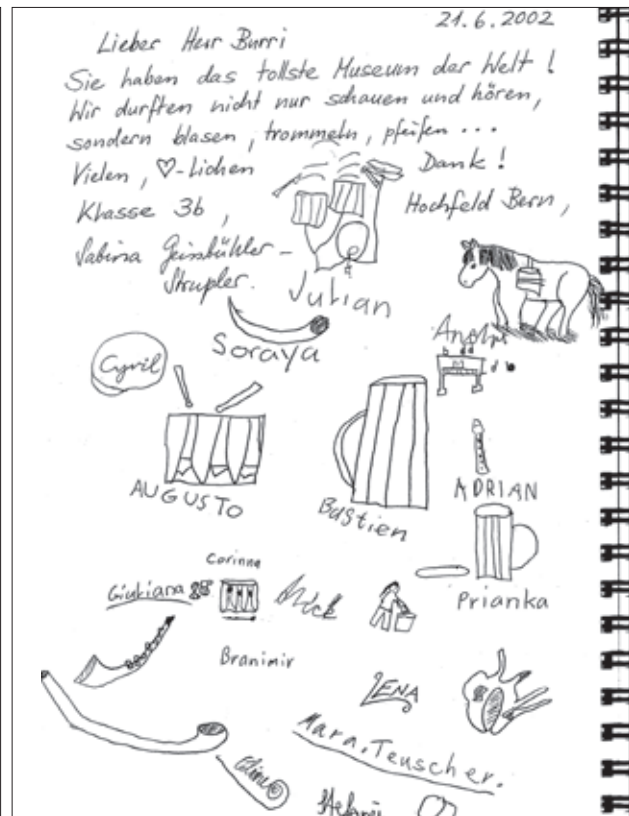 21.6.2002
Lieber Herr Burri
Sie haben das tollste Museum der Welt !
Wir durften nicht nur schauen und hören,
sondern blasen, trommeln, pfeifen ...
Vielen, ♡-lichen Dank !
Klasse 3b, Hochfeld Bern,
Sabina Geissbühler-
Strupler.
Julian
Soraya
Cyril
AUGUSTO
Bastien
ADRIAN
Prianka
Corinna
Giuliana
Nick
Branimir
LENA
Mara.Teuscher.